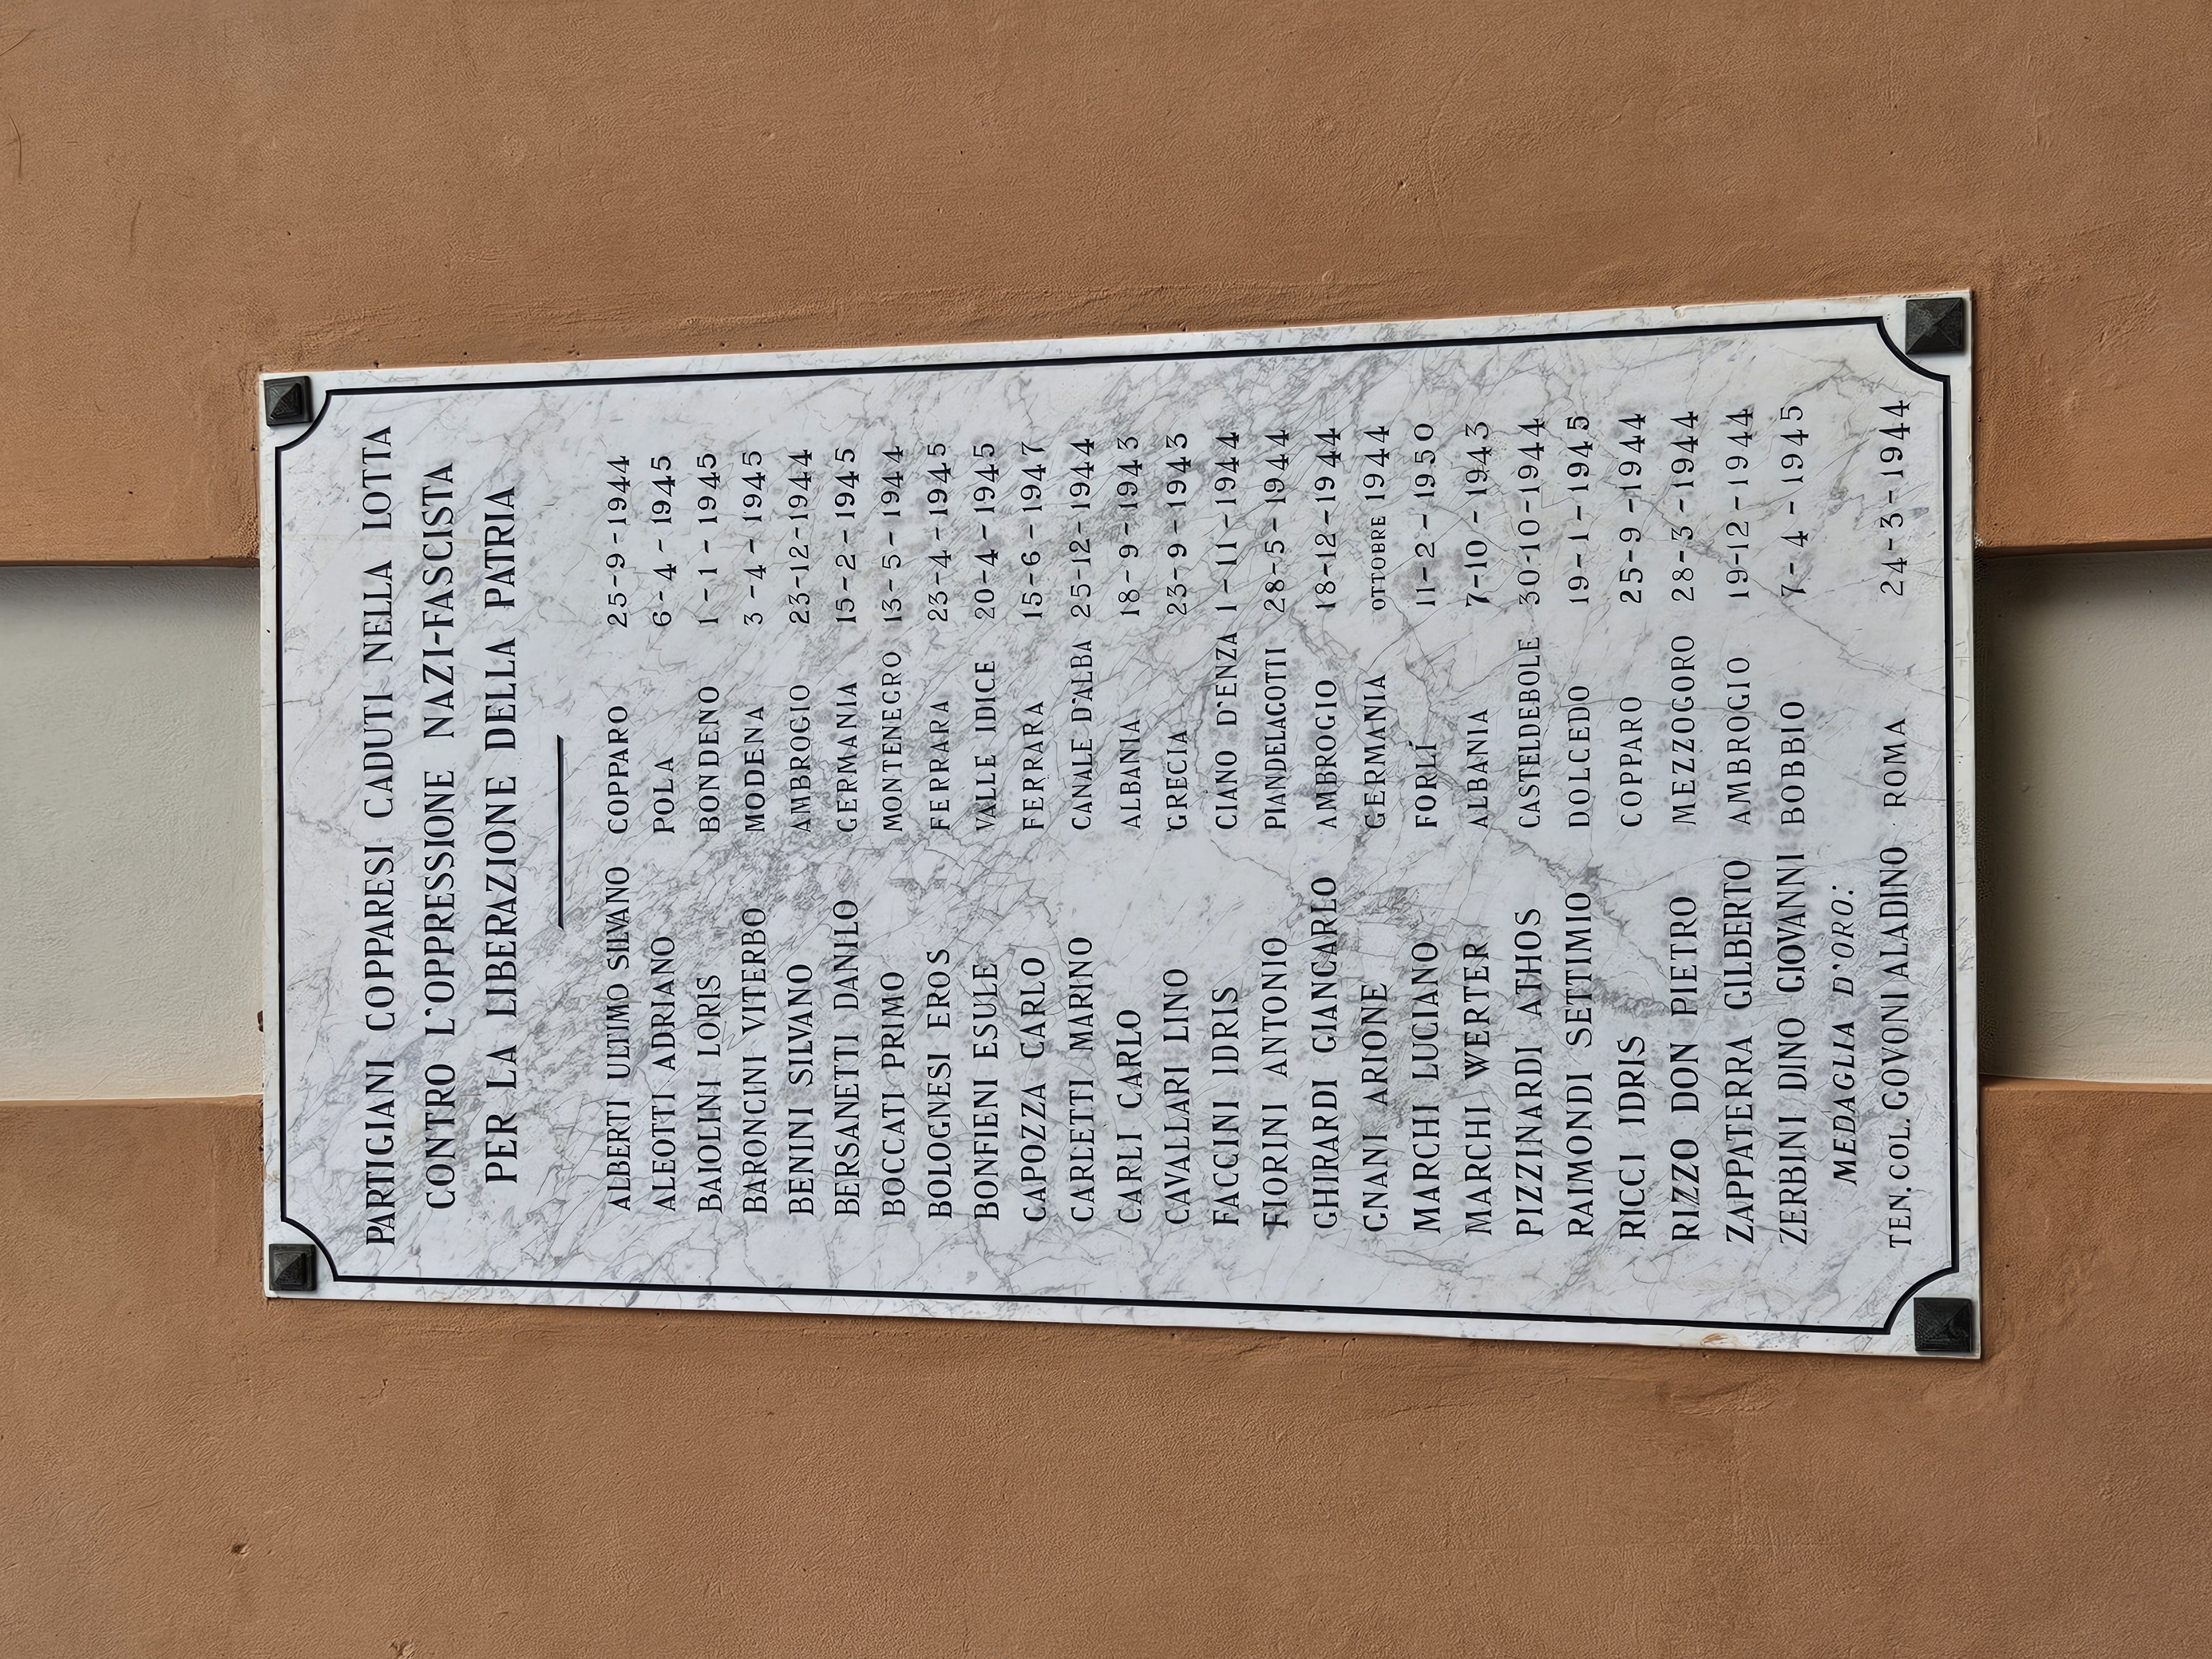 PARTIGIANI COPPARESI CADUTI NELLA LOTTA
CONTRO L'OPPRESSIONE NAZI-FASCISTA
PER LA LIBERAZIONE DELLA PATRIA
ALBERTI ULTIMO SILVANO COPPARO 25-9-1944
ALEOTTI ADRIANO POLA 6-4-1945
BAIOLINI LORIS BONDENO 1-1-1945
BARONCINI VITERBO MODENA 3-4-1945
BENINI SILVANO AMBROGIO 23-12-1944
BERSANETTI DANILO GERMANIA 15-2-1945
BOCCATI PRIMO MONTENEGRO 13-5-1944
BOLOGNESI EROS FERRARA 23-4-1945
BONFIENI ESULE VALLE IDICE 20-4-1945
CAPOZZA CARLO FERRARA 15-6-1947
CARLETTI MARINO CANALE D'ALBA 25-12-1944
CARLI CARLO ALBANIA 18-9-1943
CAVALLARI LINO GRECIA 23-9-1943
FACCINI IDRIS CIANO D'ENZA 1-11-1944
FIORINI ANTONIO PIANDELAGOTTI 28-5-1944
GHIRARDI GIANCARLO AMBROGIO 18-12-1944
GNANI ARIONE GERMANIA OTTOBRE 1944
MARCHI LUCIANO FORLÍ 11-2-1950
MARCHI WERTER ALBANIA 7-10-1943
PIZZINARDI ATHOS CASTELDEBOLE 30-10-1944
RAIMONDI SETTIMIO DOLCEDO 19-1-1945
RICCI IDRIS COPPARO 25-9-1944
RIZZO DON PIETRO MEZZOGORO 28-3-1944
ZAPPATERRA GILBERTO AMBROGIO 19-12-1944
ZERBINI DINO GIOVANNI BOBBIO 7-4-1945
MEDAGLIA D'ORO:
TEN. COL. GOVONI ALADINO ROMA 24-3-1944